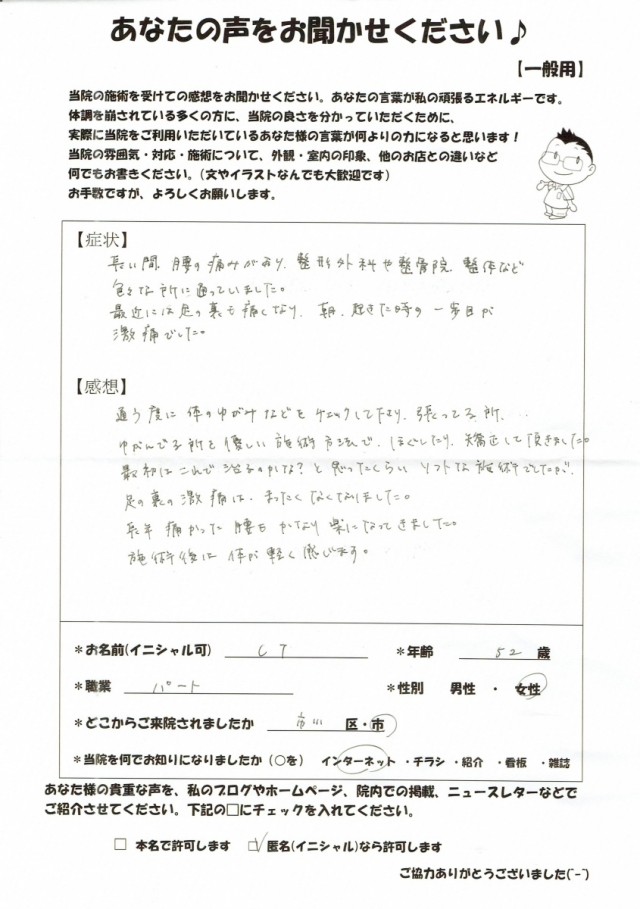 あなたの声をお聞かせください♪
【一般用】
当院の施術を受けての感想をお聞かせください。あなたの言葉が私の頑張るエネルギーです。
体調を崩されている多くの方に、当院の良さを分かっていただくために、
実際に当院をご利用いただいているあなた様の言葉が何よりの力になると思います！
当院の雰囲気・対応・施術について、外観・室内の印象、他のお店との違いなど
何でもお書きください。(文やイラストなんでも大歓迎です)
お手数ですが、よろしくお願いします。
【症状】
長い間、腰の痛みがあり、整形外科や整骨院、整体など
色々な所に通っていました。
最近には足の裏も痛くなり、朝、起きた時の一歩目が
激痛でした。
【感想】
通う度に体のゆがみなどをチェックしてたり、張ってる所、…
ゆがんでる所を優しい施術方法で、ほぐしたり、矯正して頂きました。
最初はこれで治るのかな？と思ったくらいソフトな施術でしたが、
足の裏の激痛は、まったくなくなりました。
長年痛かった腰もかなり楽になってきました。
施術後は体が軽く感じます。
*お名前(イニシャル可) *年齢 52 歳
*職業 パート *性別 男性 ・ 女性
*どこからご来院されましたか 市川 区・市
*当院を何でお知りになりましたか (○を) インターネット ・チラシ ・紹介 ・看板 ・雑誌
あなた様の貴重な声を、私のブログやホームページ、院内での掲載、ニュースレターなどで
ご紹介させてください。下記の□にチェックを入れてください。
□ 本名で許可します ☑ 匿名(イニシャル)なら許可します
ご協力ありがとうございました(^-^)